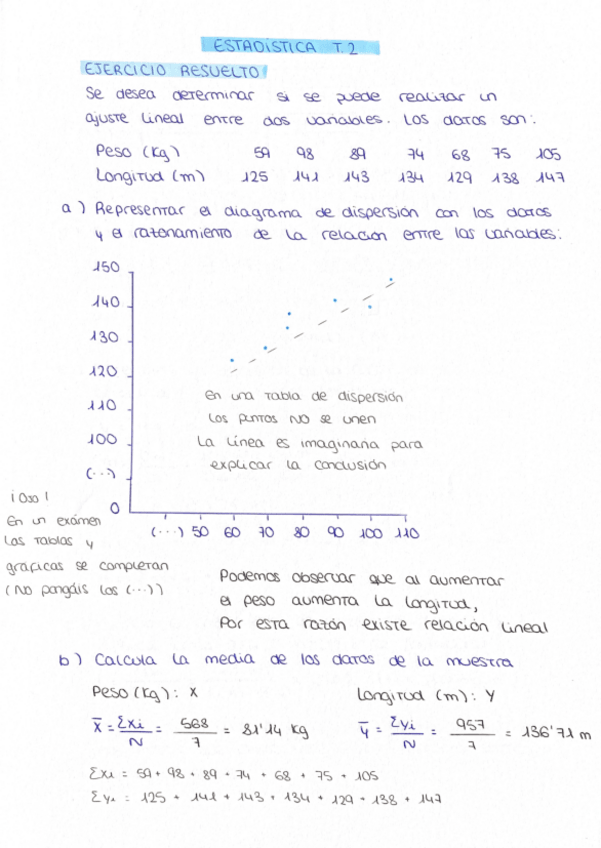 ESTADÍSTICA T.2
EJERCICIO RESUELTO
Se desea determinar si se puede realizar un
ajuste lineal entre dos variables. Los datos son:
Peso (Kg) 59 98 89 74 68 75 105
Longitud (m) 125 141 143 134 129 138 147
a) Representar el diagrama de dispersión con los datos
y el razonamiento de la relación entre las variables:
150
140
130
120
110
100
(...)
0
(...) 50 60 70 80 90 100 110
En una tabla de dispersión
los puntos NO se unen
La línea es imaginaria para
explicar la conclusión
¡Ojo!
En un exámen
las tablas y
gráficas se completan
(No pongáis los (...))
Podemos observar que al aumentar
el peso aumenta la longitud,
Por esta razón existe relación lineal
b) Calcula la media de los datos de la muestra
Peso (Kg): X Longitud (m): Y
x̄ = Σxi / N = 568 / 7 = 81'14 kg ȳ = Σyi / N = 957 / 7 = 136'71 m
Σxi = 59 + 98 + 89 + 74 + 68 + 75 + 105
Σyi = 125 + 141 + 143 + 134 + 129 + 138 + 147